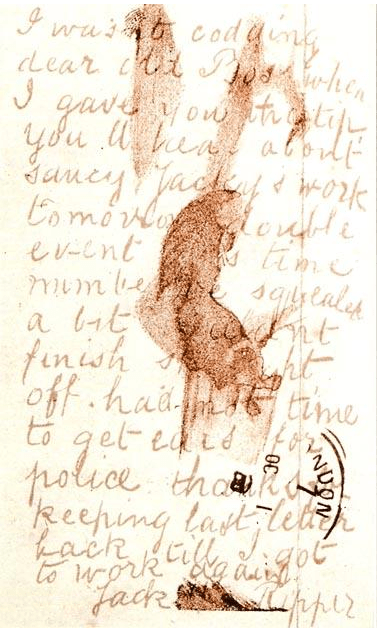 I was not codding
dear old Boss when
I gave you the tip
you'll hear about
saucy Jacky's work
tomorrow double
event time
number squealed
a bit couldn't
finish
off. had not time
to get ears for
police thanks for
keeping last letter
back till I got
to work again.
Jack Ripper